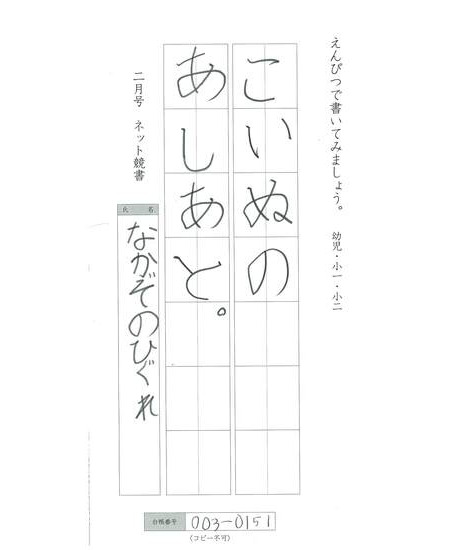 えんぴつで書いてみましょう。 幼児・小一・小二
こいぬの
あしあと。
二月号 ネット競書
氏名
ながぞのひぐれ
台帳番号 003-0151
(コピー不可)